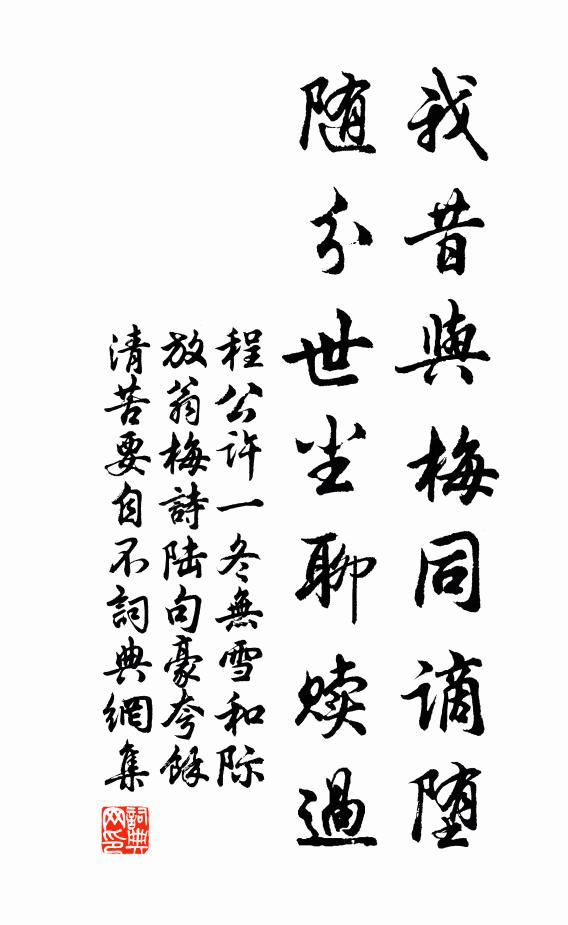 我昔與梅同謫堕
随分世尘聊赎過
程公许一冬無雪和际
放翁梅詩陆句豪夸餘
清苦要自不詞典網集
詞典網印